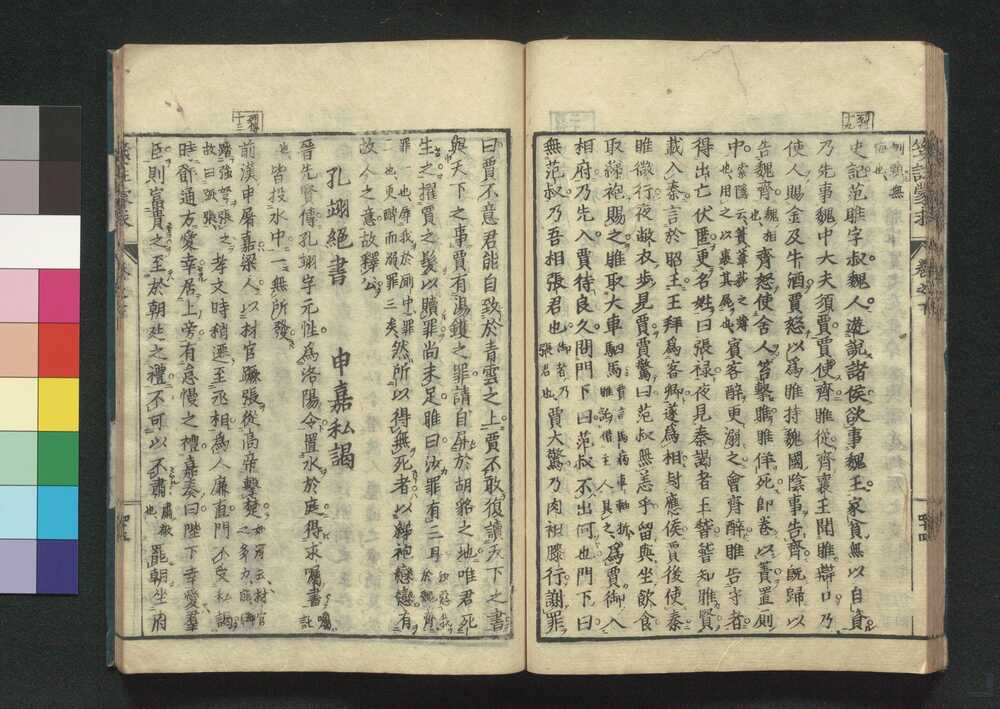 史記范雎字叔魏人遊說諸侯欲事魏王家貧無以自資
乃先事魏中大夫須賈賈使齊雎從齊襄王聞雎辯口乃
使人賜金及牛酒賈怒以為雎持魏國陰事告齊既歸以
告魏齊魏相也齊怒使舍人笞擊雎雎佯死即卷以簀置厠
中賓客醉更溺之會齊醉雎告守者
得出亡伏匿更名姓曰張祿夜見秦謁者王稽稽知雎賢
載入秦言於昭王王拜為客卿遂為相封應侯賈後使秦
雎微行夜敝衣步見賈賈驚曰范叔無恙乎留與坐飲食
取綈袍賜之雎取大車駟馬為賈御入
相府乃先入賈待良久問門下曰范叔不出何也門下曰
無范叔乃吾相張君也賈大驚乃肉袒膝行謝罪
曰賈不意君能自致於青雲之上賈不敢復讀天下之書
與天下之事賈有湯鑊之罪請自屏於胡貉之地唯君死
生之擢賈之髮以贖罪尚未足雎曰汝罪有三
然所以得無死者以綈袍戀戀有
故人之意故釋公
孔翊絕書 申嘉私謁
晉先賢傳孔翊字元性為洛陽令置水於庭得求囑書
皆投水中一無所發
前漢申屠嘉梁人以材官蹶張從高帝擊楚
孝文時稍遷至丞相為人廉直門不受私謁
時鄧通方愛幸居上旁有怠慢之禮嘉奏曰陛下幸愛羣
臣則富貴之至於朝廷之禮不可以不肅罷朝坐府